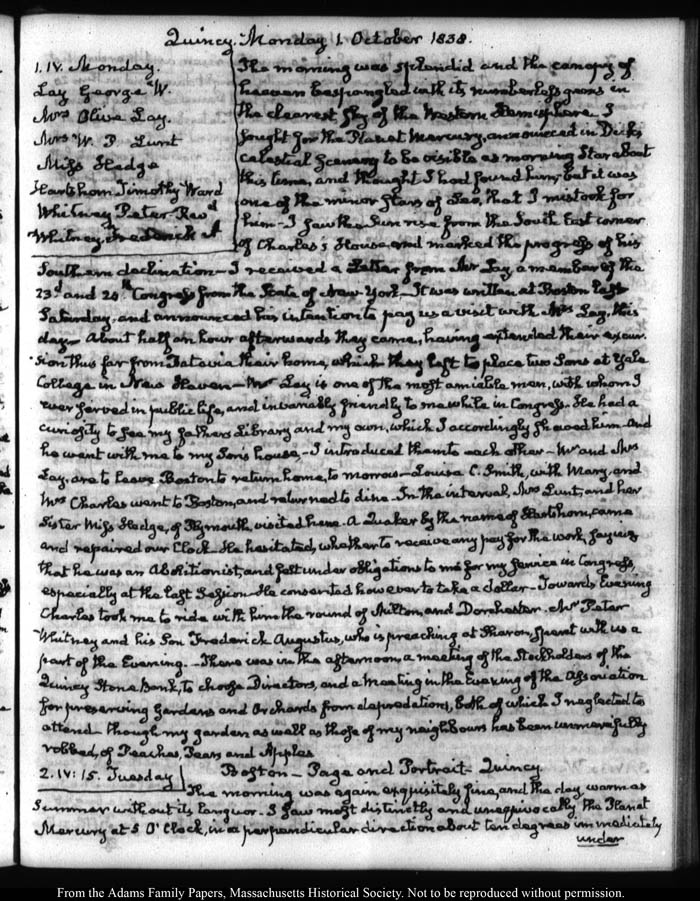 Quincy. Monday 1. October 1838.
1. IV. Monday.
Lay George W.
Mrs Olive Lay.
Mrs W. P Lunt
Miss Hedge
Hartshorn Timothy Ward
Whitney Peter Revd
Whitney Frederick A
The morning was splendid and the canopy of
heaven bespangled with its numberless gems in
the clearest sky of the Western Hemisphere. I
sought for the Planet Mercury, announced in Dick's
celestial scenery to be visible as morning Star about
this time, and thought I had found him, but it was
one of the minor stars of Leo, that I mistook for
him. I saw the Sun rise from the South East corner
of Charles's House and marked the progress of his
Southern declination – I received a Letter from Mr Lay, a member of the
23d and 24th Congress from the State of New-York – It was written at Boston last
Saturday, and announced his intention to pay us a visit with Mrs Lay, this
day – About half an hour afterwards they came, having extended their excur
sion thus far from Batavia their home, which they left to place two Sons at Yale
College in New Haven – Mr Lay is one of the most amiable men, with whom I
ever served in public life, and invariably friendly to me while in Congress. He had a
curiosity to see my father's Library and my own, which I accordingly shewed him – And
he went with me to my Son's house, – I introduced them to each other – Mr and Mrs
Lay, are to leave Boston to return home, to morrow – Louisa C. Smith, with Mary, and
Mrs Charles went to Boston, and returned to dine. In the interval, Mrs Lunt, and her
Sister Miss Hedge, of Plymouth, visited here. A Quaker by the name of Hartshorn, came
and repaired our Clock. He hesitated, whether to receive any pay for the work, saying
that he was an Abolitionist, and felt under obligations to me for my service in Congress,
especially at the last Session – He consented however to take a dollar – Towards Evening
Charles took me to ride with him the round of Milton, and Dorchester. Mr Peter
Whitney and his Son Frederick Augustus, who is preaching at Sharon, spent with us a
part of the Evening. – There was in the afternoon a meeting of the Stockholders of the
Quincy Stone Bank, to choose Directors, and a meeting in the Evening of the Association
for preserving Gardens and Orchards from depredations, both of which I neglected to
attend though my garden as well as those of my neighbours has been unmercifully
robbed, of Peaches, Pears and Apples
2. IV: 15. Tuesday
Boston – Page and Portrait – Quincy
The morning was again exquisitely fine, and the day, warm as
Summer without its languor. I saw most distinctly and unequivocally the Planet
Mercury at 5 O'Clock, in a perpendicular direction about ten degrees immediately
under
From the Adams Family Papers, Massachusetts Historical Society. Not to be reproduced without permission.